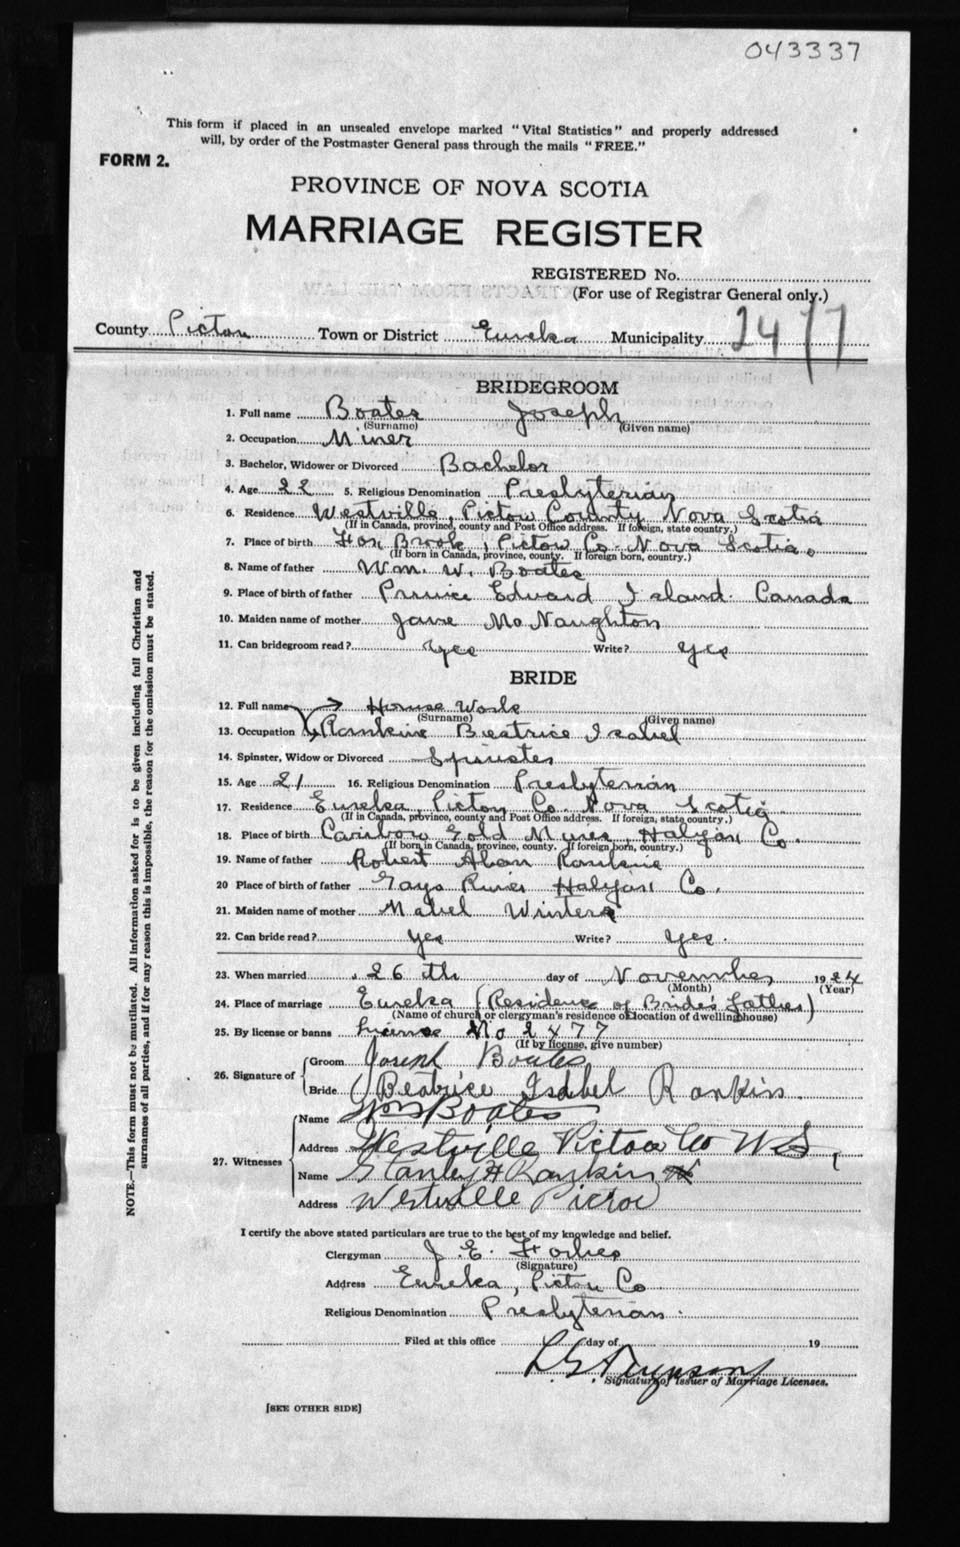 043337
This form if placed in an unsealed envelope marked "Vital Statistics" and properly addressed
will, by order of the Postmaster General pass through the mails "FREE."
FORM 2.
PROVINCE OF NOVA SCOTIA
MARRIAGE REGISTER
REGISTERED No.
(For use of Registrar General only.)
County Pictou Town or District Eureka Municipality 2477
BRIDEGROOM
1. Full name Boates Joseph
(Surname) (Given name)
2. Occupation Miner
3. Bachelor, Widower or Divorced Bachelor
4. Age 22 5. Religious Denomination Presbyterian
6. Residence Westville, Pictou County Nova Scotia
(If in Canada, province, county and Post Office address. If foreign, state country.)
7. Place of birth Fox Brook, Pictou Co. Nova Scotia.
(If born in Canada, province, county. If foreign born, country.)
8. Name of father Wm. W. Boates
9. Place of birth of father Prince Edward Island. Canada
10. Maiden name of mother Jane McNaughton
11. Can bridegroom read? yes Write? yes
BRIDE
12. Full name House Work
(Surname) (Given name)
13. Occupation Rankine Beatrice Isabel
14. Spinster, Widow or Divorced Spinster
15. Age 21 16. Religious Denomination Presbyterian
17. Residence Eureka, Pictou Co. Nova Scotia
(If in Canada, province, county and Post Office address. If foreign, state country.)
18. Place of birth Caribou Gold Mines, Halifax Co.
(If born in Canada, province, county. If foreign born, country.)
19. Name of father Robert Rankine
20 Place of birth of father Gays River Halifax Co.
21. Maiden name of mother Mabel Winters
22. Can bride read? yes Write? yes.
23. When married 26 th day of November, 1924
(Month) (Year)
24. Place of marriage Eureka (Residence of Bride's father)
(Name of church or clergyman's residence or location of dwelling house)
25. By license or banns License No 2477
(If by license, give number)
26. Signature of
Groom Joseph Boates
Bride Beatrice Isabel Rankin.
27. Witnesses
Name Wm Boates
Address Westville Pictou Co N S
Name Stanley H Rankin
Address Westville Pictou
I certify the above stated particulars are true to the best of my knowledge and belief.
Clergyman J. E. Forbes
(Signature)
Address Eureka, Pictou Co
Religious Denomination Presbyterian.
Filed at this office day of 19
Signature of Issuer of Marriage Licenses.
[SEE OTHER SIDE]
NOTE.—This form must not be mutilated. All information asked for is to be given including full Christian and
surnames of all parties, and if for any reason this is impossible, the reason for the omission must be stated.